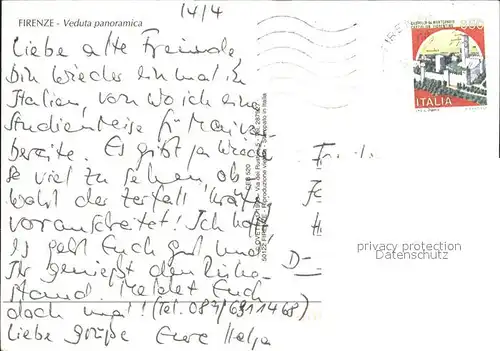 FIRENZE - Veduta panoramica
14/4
Liebe alte Freunde,
bin wieder einmal in
Italien, von wo ich eine
Studienreise für Mai vor-
bereite. Es gibt ja wieder
so viel zu sehen, ob-
wohl der Zerfall kräftig
voranschreitet! Ich hoffe,
es geht Euch gut und
Ihr genießt den Ruhe-
stand. Meldet Euch
doch mal! (Tel. 089/6911468)
Liebe Grüße Eure Helga
CASTELLO DI MONTECCHIO
CASTIGLION FIORENTINO
ITALIA
FIREN
D-
privacy protection
watermark